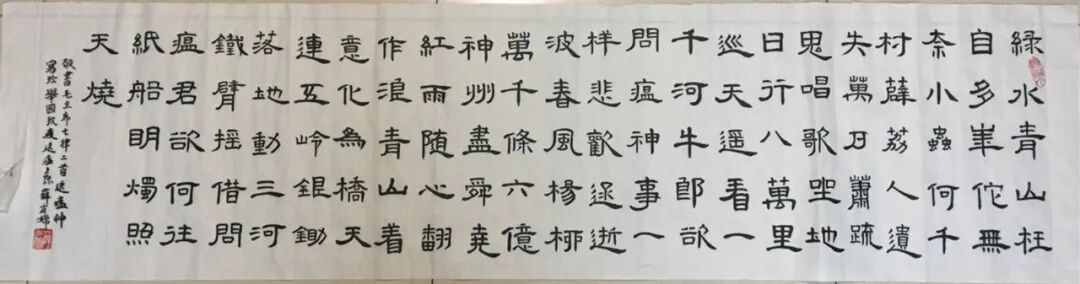 綠水青山枉
自多華佗無
奈小蟲何千
村薜荔人遺
失萬戶蕭疏
鬼唱歌坐地
日行八萬里
巡天遙看一
千河牛郎欲
問瘟神事一
样悲歡逐逝
波春風楊柳
萬千條六億
神州盡舜堯
紅雨隨心翻
作浪青山着
意化為橋天
連五嶺銀鋤
落地動三河
鐵臂搖借問
瘟君欲何往
紙船明燭照
天燒
敬書毛主席七律二首送瘟神
寫於舉國抗疫送瘟之際薛